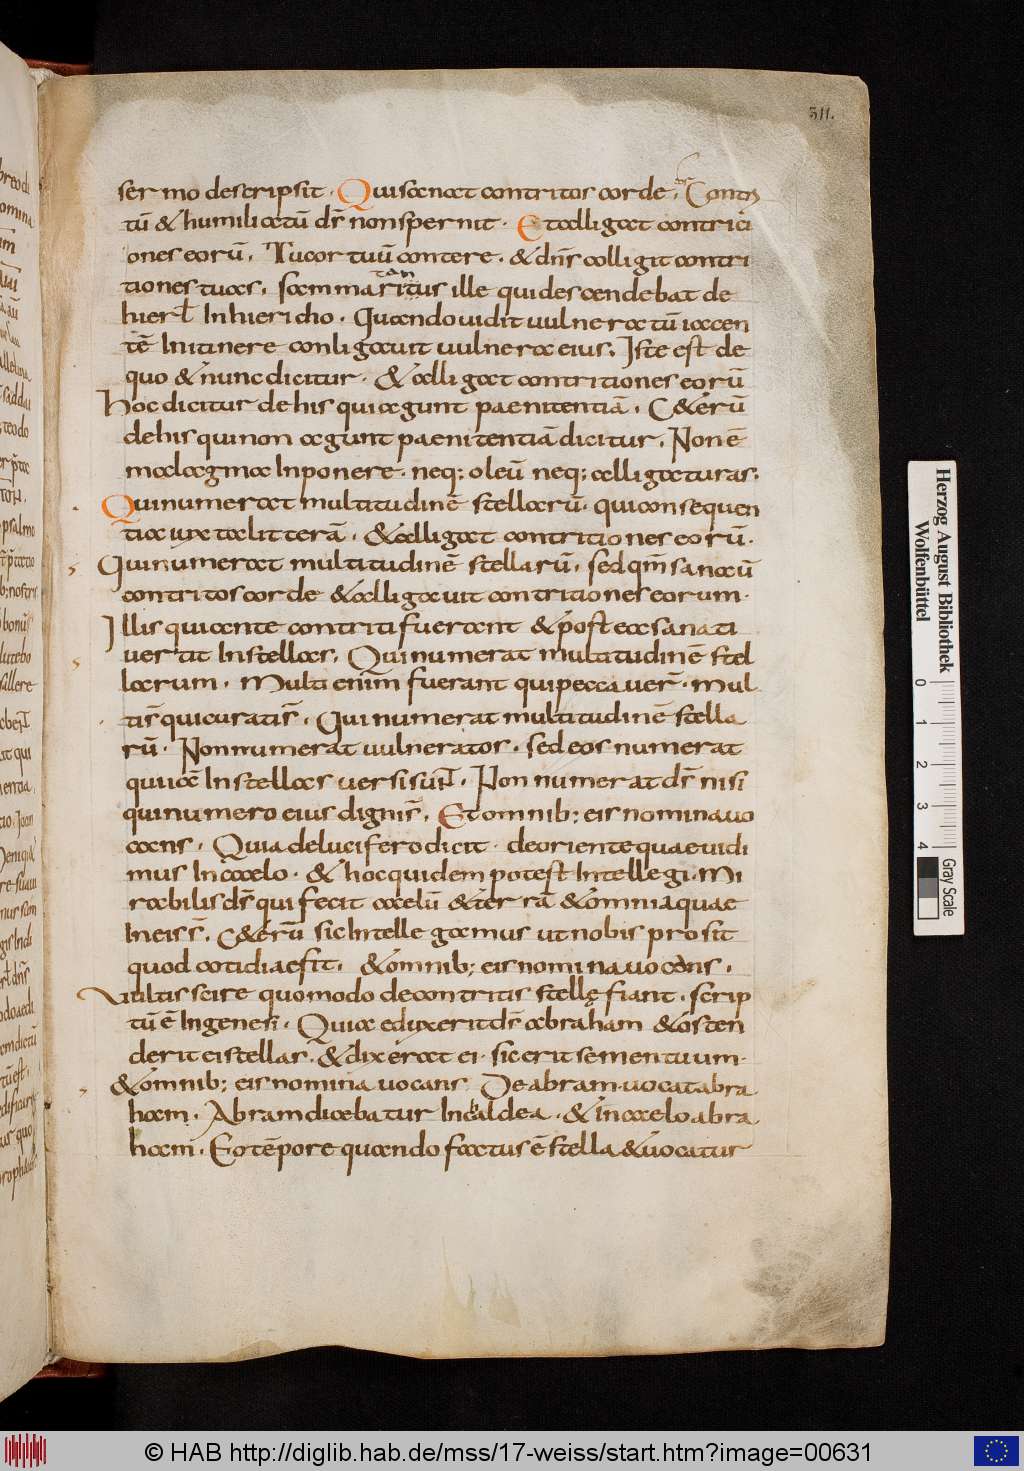 311.
sermo descripsit. Qui sanat contritos corde. Contri
tū & humiliatū dr̄ non spernit. Et alligat contriti
ones eorū. Tu cor tuū contere. & dn̄s colligit contri
tiones tuas. sammaritus ille qui descendebat de
tan
hierl̄ In hiericho. Quando vidit uulneratū iacen
tē In itinere conligauit uulnera eius. Iste est de
quo & nunc dicitur. & alligat contritiones eorū
hoc dicitur de his qui agunt paenitentiā. C&erū
de his qui non agunt paenitentiā dicitur. Non ē
malagma Inponere. neq; oleū neq; alligaturas.
Qui numerat multitudinē stellarū. qui consequen
tia iuxta litterā. & alligat contritiones eorū.
Qui numerat multitudinē stellarū. sed qm̄ sanaū
contritos corde & alligauit contritiones eorum.
Illis qui ante contriti fuerant & postea sanati
uertit In stellas. Qui numerat multitudinē stel
larum. Multi enim fuerant qui peccauer̄. mul
tis qui curatis̄. Qui numerat multitudinē stella
rū. Non numerat uulneratos. sed eos numerat
qui iā In stellas uersi sunt. Non numerat ds̄ nisi
qui numero eius dignis̄. Et omnib; eis nomina uo
cans. Quia de lucifero dicit. de oriente quae uidi
mus In caelo. & hoc quidem potest Intellegi. Mi
rabilis ds̄ qui fecit caelū & terrā & omnia quae
In eis s̄. C&erū sic Intellegamus ut nobis prosit
quod cotidiae fit. & omnib; eis nomina uocans.
Vultis scire quomodo de contritis stellę fiant. scrip
tū ē In genesi. Quia eduxerit ds̄ abraham & osten
derit ei stellas. & dixerat ei. sic erit semen tuum.
& omnib; eis nomina uocans De abram uocat abra
ham. Abram dicebatur In caldea. & in caelo abra
ham. Eo tēpore quando factus ē stella & uocatur
Herzog August Bibliothek
Wolfenbüttel
0 1 2 3 4
Gray Scale
© HAB http://diglib.hab.de/mss/17-weiss/start.htm?image=00631